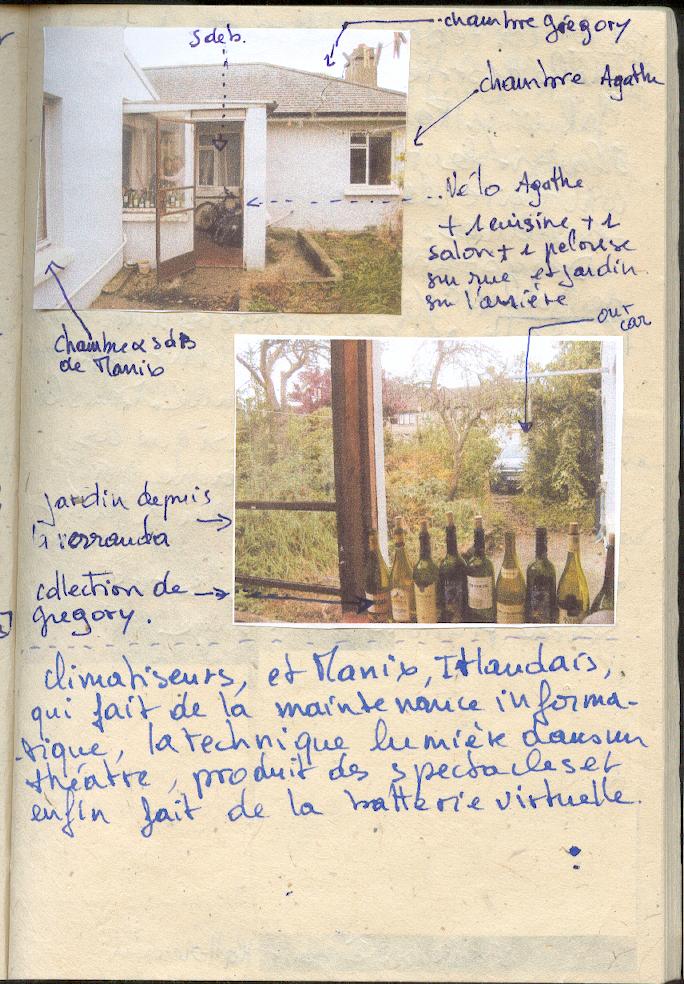 s de b.
chambre grégory
chambre Agathe
Vélo Agathe
+ 1 cuisine + 1
salon + 1 pelouse
sur rue et jardin
sur l'arrière
chambre & sdB
de Manix
our
car
jardin depuis
la verranda
collection de
gregory.
climatiseurs, et Manix, Irlandais,
qui fait de la maintenance informa-
tique, la technique lumière dans un
théâtre, produit des spectacles et
enfin fait de la batterie virtuelle.